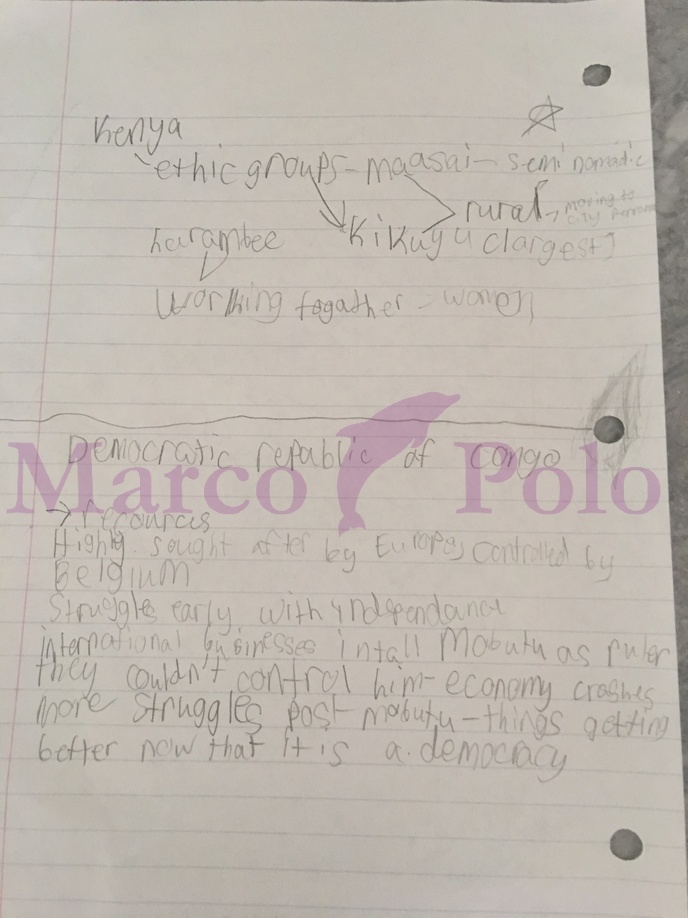 Kenya
ethic groups - maasai - semi nomadic
rural → moving to
city
harambee Kikuyu (largest)
Working togather - women
Democratic repablic of congo
Marco Polo
→ recources
Highly sought after by Europe, controlled by
Belgium
Struggles early with independance
international businesses intall Mobutu as ruler
they couldn't control him - economy crashes
more struggles post mobutu - things getting
better now that it is a democracy